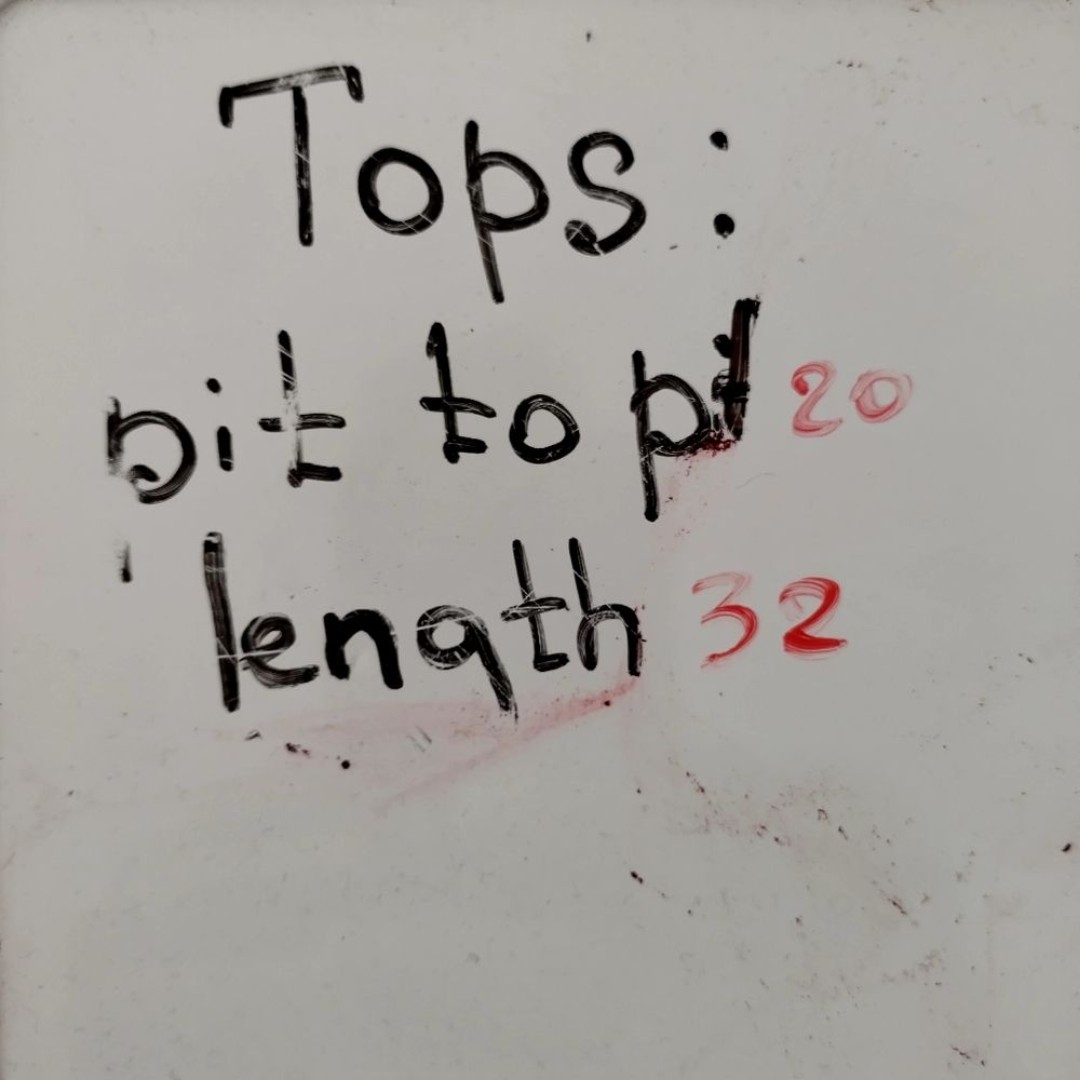 Tops:
pit to pit 20
length 32